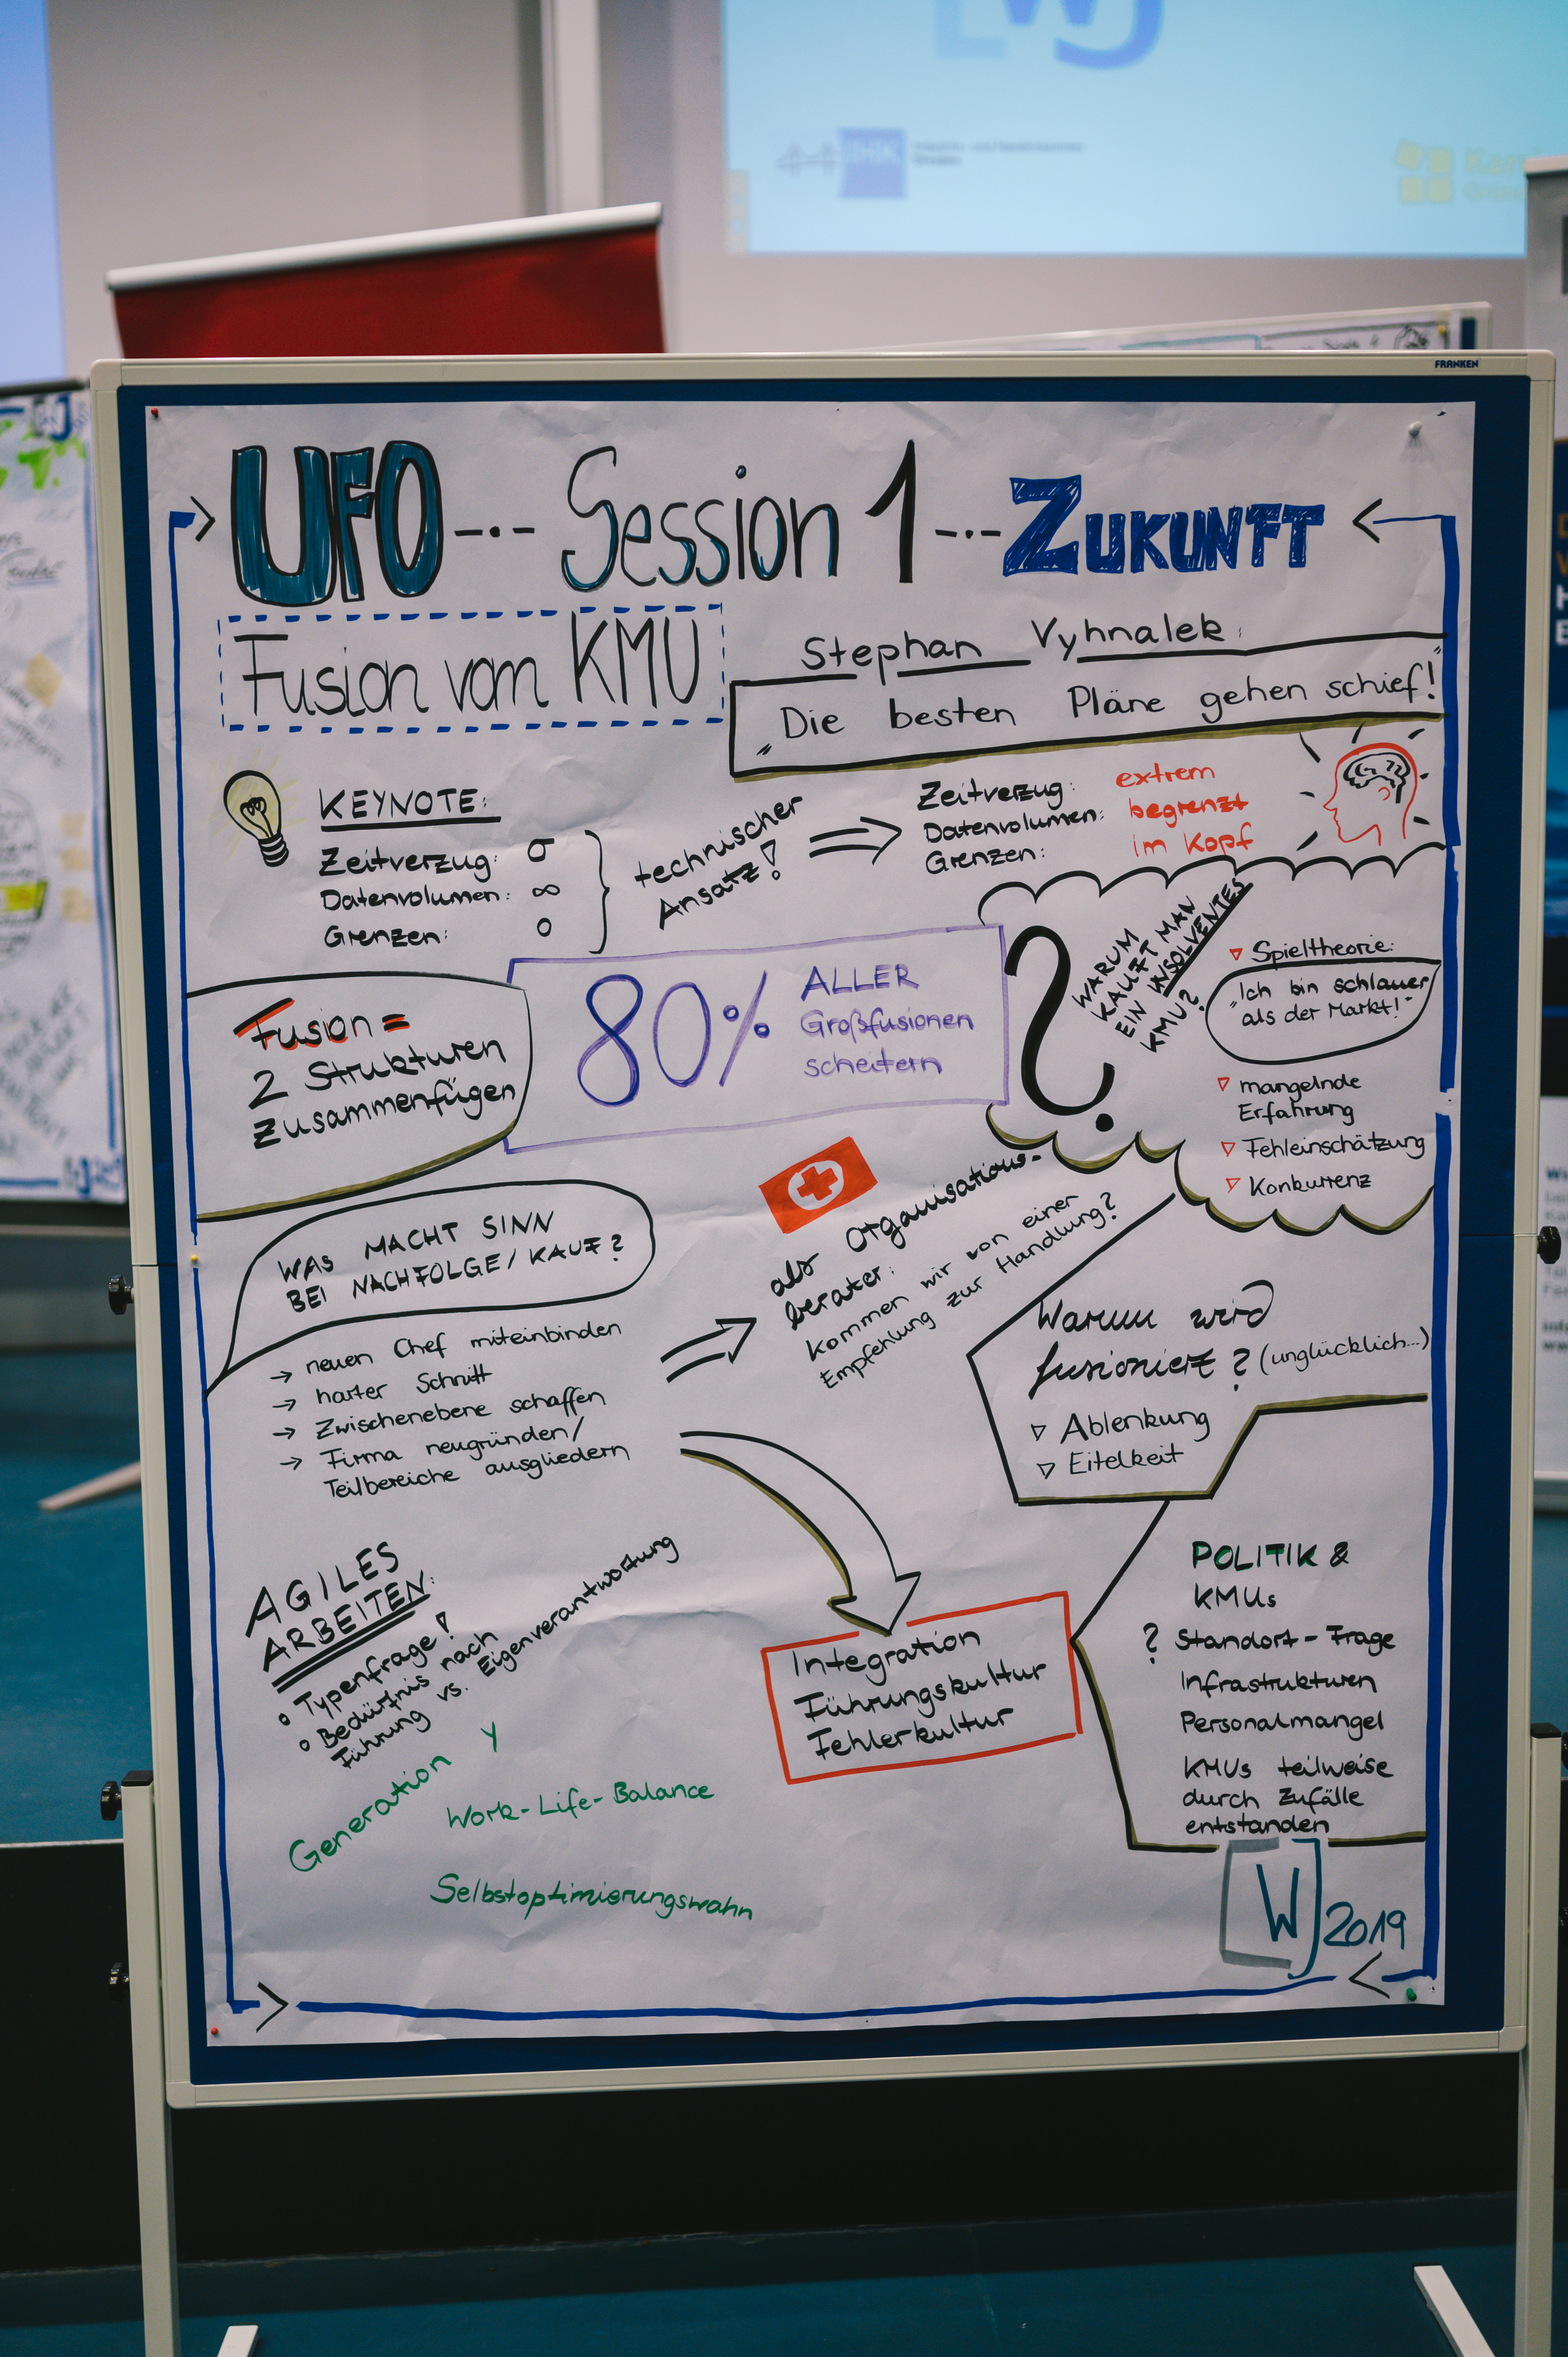 WJ
IHK
FRANKEN
UFO --·-- Session 1 --·-- ZUKUNFT
Fusion von KMU
Stephan Vyhnalek:
"Die besten Pläne gehen schief!"
KEYNOTE:
Zeitverzug: 0
Datenvolumen: ∞
Grenzen: 0
technischer
Ansatz!
Zeitverzug: extrem
Datenvolumen: begrenzt
Grenzen: im Kopf
Fusion =
2 Strukturen
Zusammenfügen
80% ALLER
Großfusionen
scheitern
?
WARUM
KAUFT MAN
EIN INSOLVENTES
KMU?
Spieltheorie:
"Ich bin schlauer
als der Markt!"
mangelnde
Erfahrung
Fehleinschätzung
Konkurrenz
WAS MACHT SINN
BEI NACHFOLGE/KAUF?
→ neuen Chef miteinbinden
→ harter Schnitt
→ Zwischenebene schaffen
→ Firma neugründen/
Teilbereiche ausgliedern
als Organisations-
berater:
Kommen wir von einer
Empfehlung zur Handlung?
Warum wird
fusioniert? (unglücklich...)
Ablenkung
Eitelkeit
AGILES
ARBEITEN:
Typenfrage!
Bedürfnis nach
Führung vs. Eigenverantwortung
Generation Y
Work-Life-Balance
Selbstoptimierungswahn
Integration
Führungskultur
Fehlerkultur
POLITIK &
KMUs
? Standort-Frage
Infrastrukturen
Personalmangel
KMUs teilweise
durch Zufälle
entstanden
WJ 2019